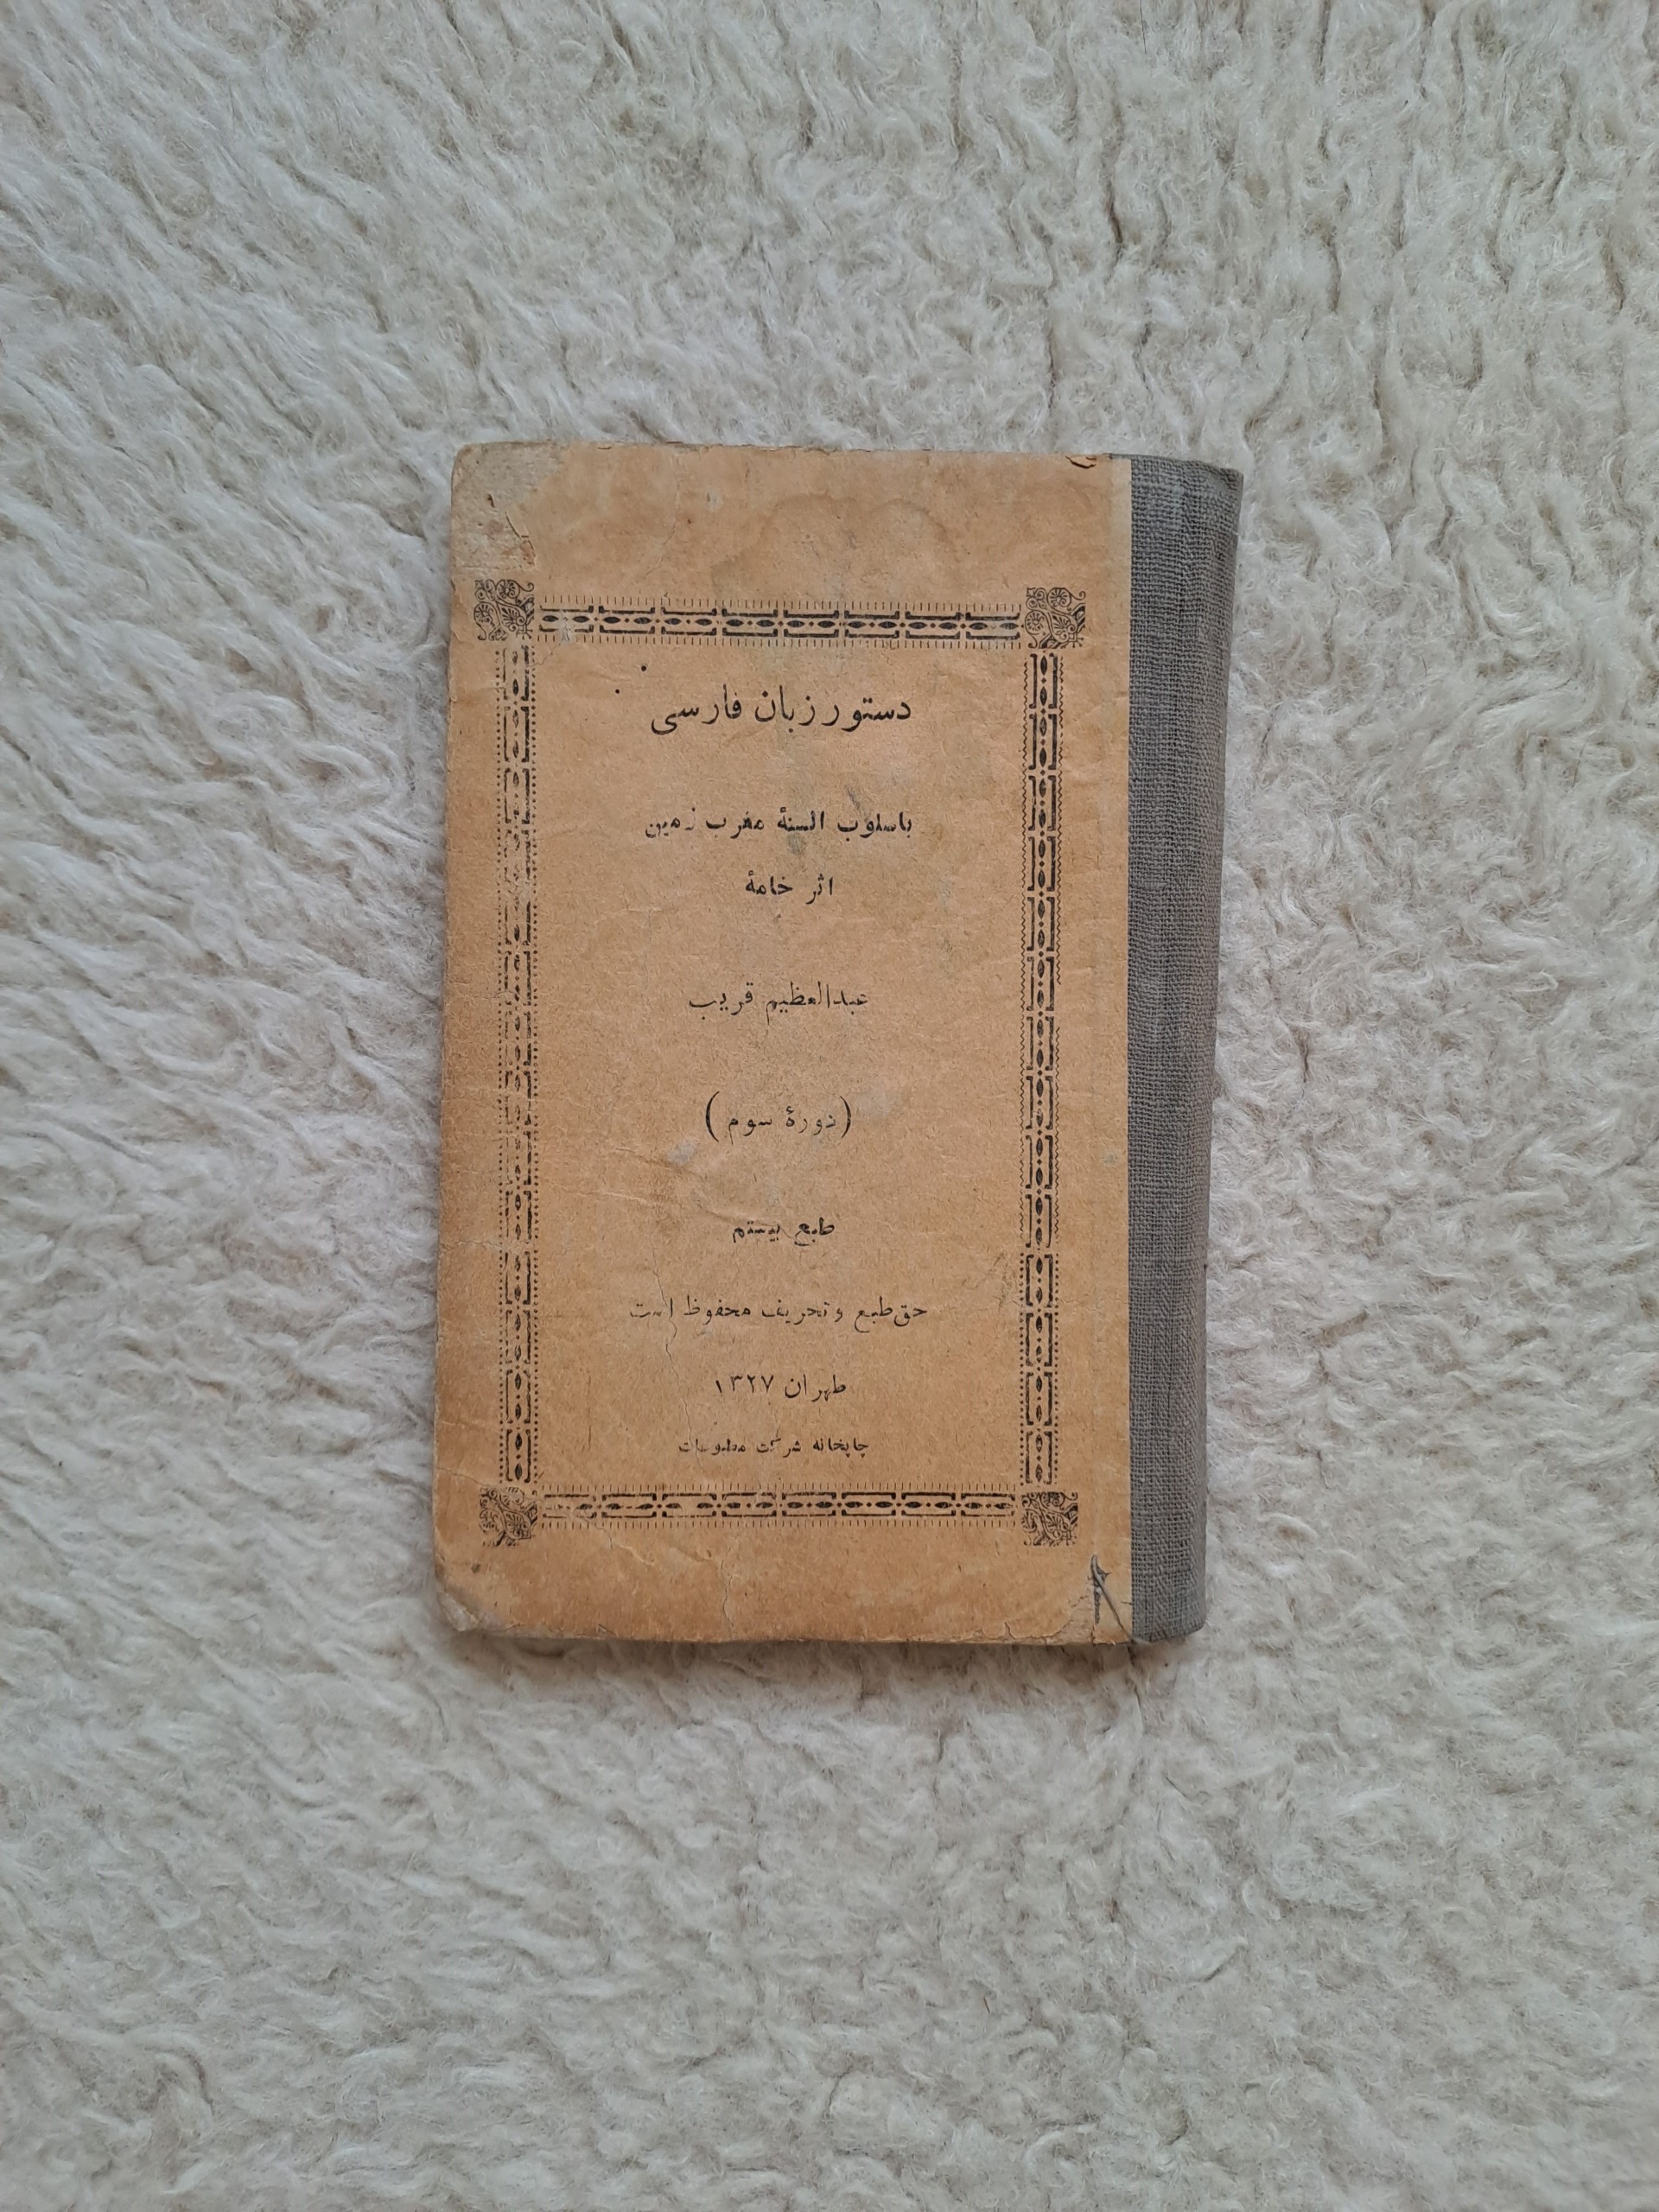 دستور زبان فارسی
باسلوب السنهٔ مغرب زمین
اثر خامهٔ
عبدالعظیم قریب
(دورهٔ سوم)
طبع بیستم
حق طبع و تحریف محفوظ است
طهران ۱۳۲۷
چاپخانه شرکت مطبوعات